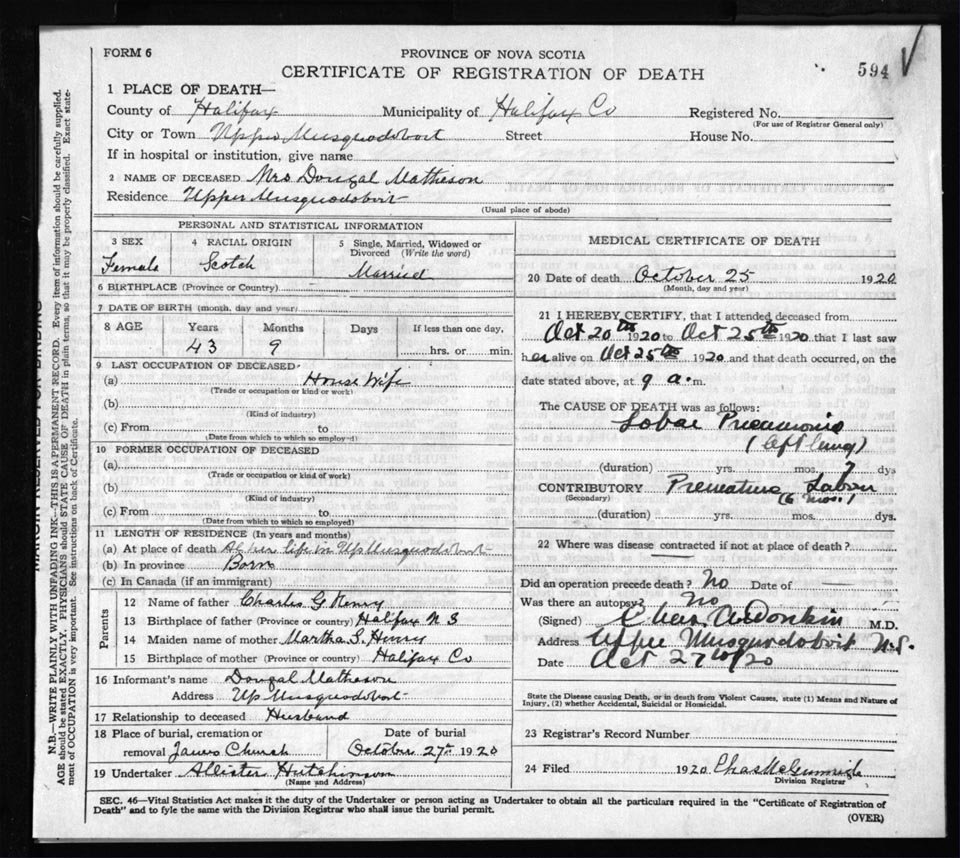 FORM 6
PROVINCE OF NOVA SCOTIA
CERTIFICATE OF REGISTRATION OF DEATH
594
1 PLACE OF DEATH—
County of Halifax Municipality of Halifax Co Registered No.
(For use of Registrar General only)
City or Town Upper Musquodoboit Street House No.
If in hospital or institution, give name
2 NAME OF DECEASED Mrs Dougal Matheson
Residence Upper Musquodoboit
(Usual place of abode)
PERSONAL AND STATISTICAL INFORMATION
3 SEX 4 RACIAL ORIGIN 5 Single, Married, Widowed or
Divorced (Write the word)
Female Scotch Married
6 BIRTHPLACE (Province or Country)
7 DATE OF BIRTH (month, day and year)
8 AGE Years Months Days If less than one day,
43 9 hrs. or min.
9 LAST OCCUPATION OF DECEASED
(a) House Wife
(Trade or occupation or kind or work)
(b)
(Kind of industry)
(c) From to
(Date from which to which so employed)
10 FORMER OCCUPATION OF DECEASED
(a)
(Trade or occupation or kind of work)
(b)
(Kind of industry)
(c) From to
(Date from which to which so employed)
11 LENGTH OF RESIDENCE (In years and months)
(a) At place of death All her life in Up Musquodoboit
(b) In province Born
(c) In Canada (if an immigrant)
Parents
12 Name of father Charles G Henry
13 Birthplace of father (Province or country) Halifax N S
14 Maiden name of mother Martha S. Henry
15 Birthplace of mother (Province or country) Halifax Co
16 Informant's name Dougal Matheson
Address Up Musquodoboit
17 Relationship to deceased Husband
18 Place of burial, cremation or Date of burial
removal James Church October 27th 1920
19 Undertaker Allister Hutchinson
(Name and Address)
MEDICAL CERTIFICATE OF DEATH
20 Date of death October 25 1920
(Month, day and year)
21 I HEREBY CERTIFY, that I attended deceased from
Oct 20th 1920 to Oct 25th 1920 that I last saw
her alive on Oct 25th 1920 and that death occurred, on the
date stated above, at 9 a.m.
The CAUSE OF DEATH was as follows:
Lobar Pneumonia
(left lung)
(duration) yrs. mos. 7 dys
CONTRIBUTORY Premature Labour
(Secondary) (6 mos.)
(duration) yrs. mos. dys.
22 Where was disease contracted if not at place of death?
Did an operation precede death? No Date of —
Was there an autopsy? No
(Signed) Donkin M.D.
Address Upper Musquodoboit N.S.
Date Oct 27th/20
State the Disease causing Death, or in death from Violent Causes, state (1) Means and Nature of
Injury, (2) whether Accidental, Suicidal or Homicidal.
23 Registrar's Record Number
24 Filed 1920 Chas
Division Registrar
SEC. 46—Vital Statistics Act makes it the duty of the Undertaker or person acting as Undertaker to obtain all the particulars required in the "Certificate of Registration of
Death" and to fyle the same with the Division Registrar who shall issue the burial permit.
(OVER)
MARGIN RESERVED FOR BINDING
N.B.—WRITE PLAINLY WITH UNFADING INK—THIS IS A PERMANENT RECORD. Every item of information should be carefully supplied.
AGE should be stated EXACTLY. PHYSICIANS should STATE CAUSE OF DEATH in plain terms, so that it may be properly classified. Exact state-
ment of OCCUPATION is very important. See instructions on back of Certificate.